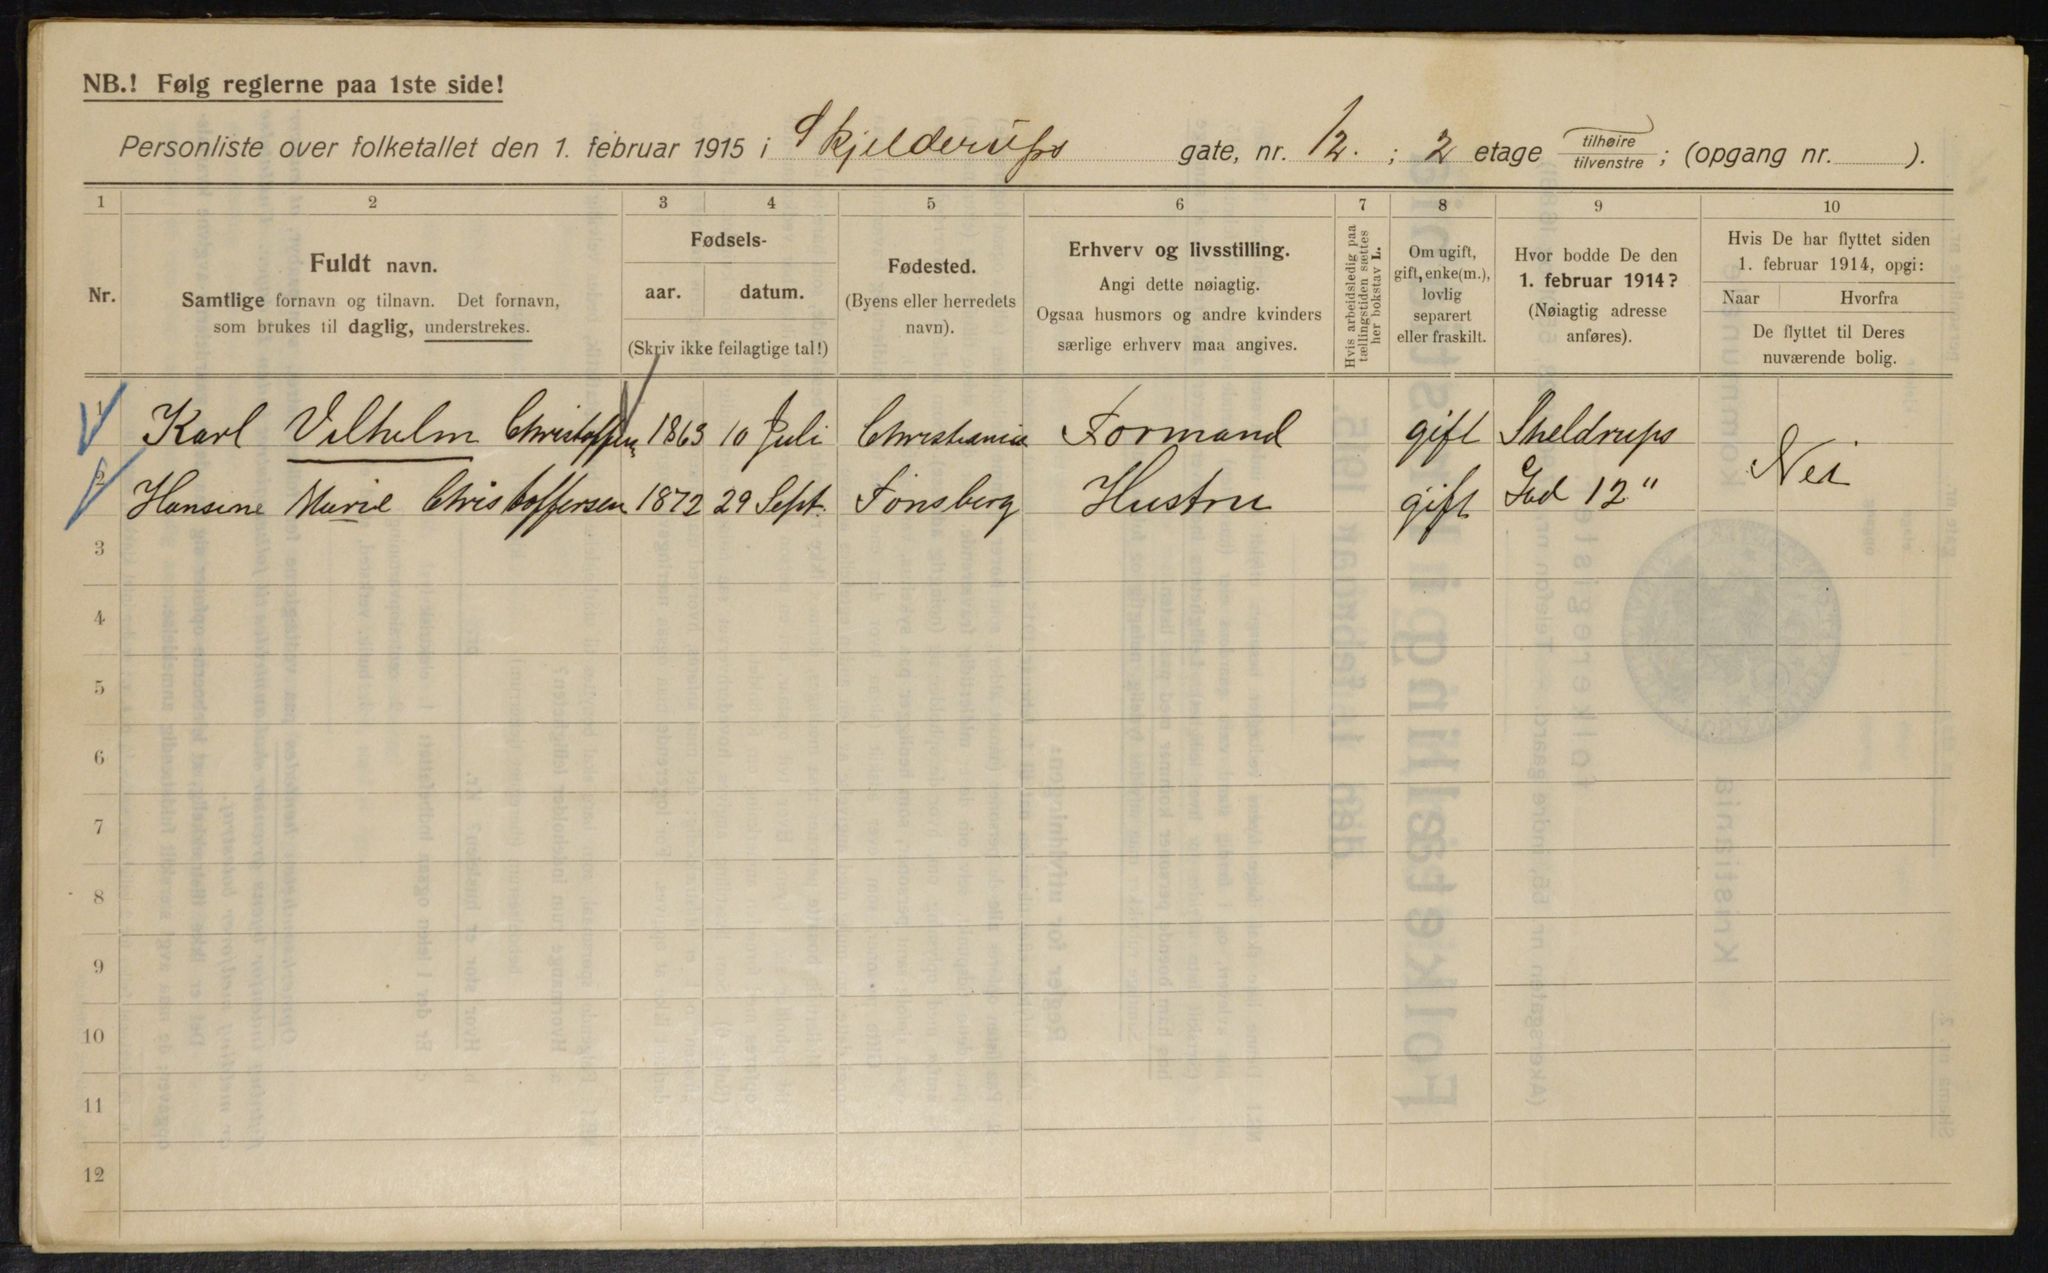 NB.! Følg reglerne paa 1ste side!
Personliste over folketallet den 1. februar 1915 i Skjelderups gate, nr. 12. ; 2 etage tilhøire/tilvenstre ; (opgang nr. ).
1 2 3 4 5 6 7 8 9 10
Nr.
Fuldt navn.
Samtlige fornavn og tilnavn. Det fornavn,
som brukes til daglig, understrekes.
Fødsels-
aar. datum.
(Skriv ikke feilagtige tal!)
Fødested.
(Byens eller herredets
navn).
Erhverv og livsstilling.
Angi dette nøiagtig.
Ogsaa husmors og andre kvinders
særlige erhverv maa angives.
Hvis arbeidsledig paa
tællingstiden sættes
her bokstav L.
Om ugift,
gift, enke(m.),
lovlig
separert
eller fraskilt.
Hvor bodde De den
1. februar 1914?
(Nøiagtig adresse
anføres).
Hvis De har flyttet siden
1. februar 1914, opgi:
Naar Hvorfra
De flyttet til Deres
nuværende bolig.
1 Karl Vilhelm Christoffersen 1863 10 Juli Christiania Formand gift Sheldrups
2 Hansine Marie Christoffersen 1872 29 Sept. Tönsberg Hustru gift Gad 12" Nei
3
4
5
6
7
8
9
10
11
12